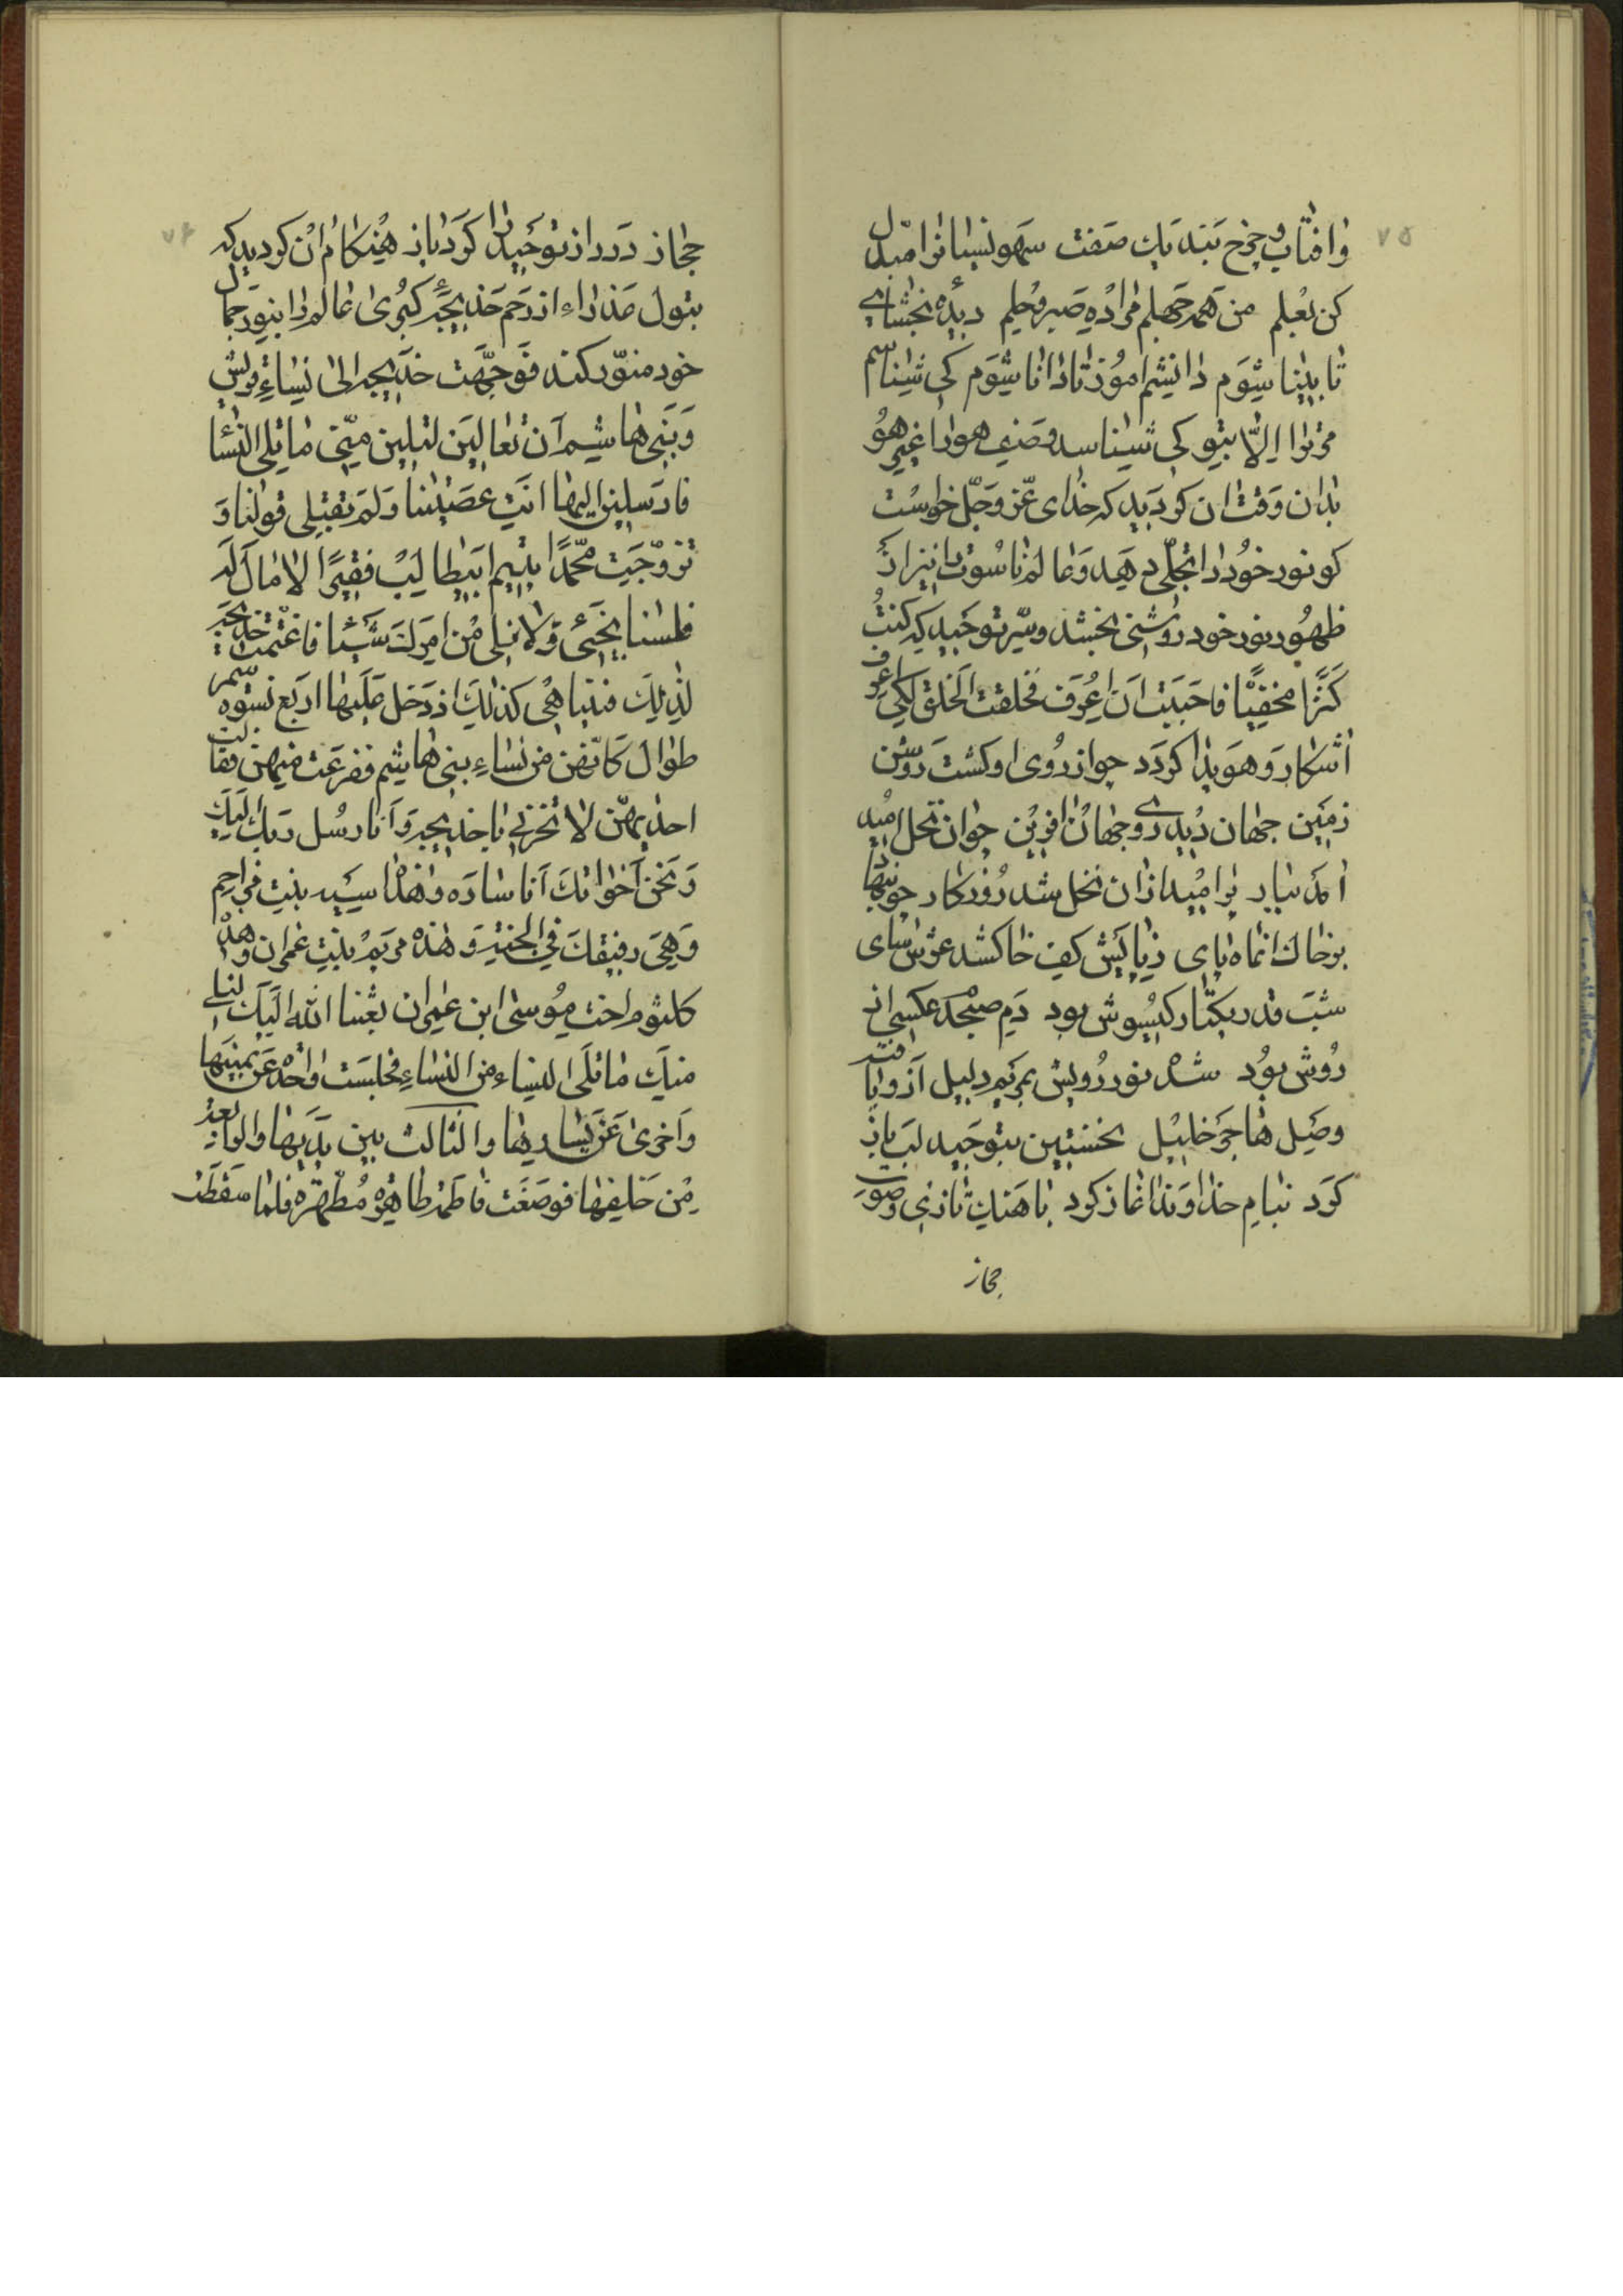 ۷۵
وافتاب وچرخ بتند یک صفت سهو نسیانرا مبدل
کن بعلم من همه جهلم مرا ده صبر و حلم دیده بخشای
تا بینا شوم دانشم اموز تا دانا شوم کی شناسم
مر ترا الّا بتو کی شناسد وصف هو را غیر هو
بدان وقت ان کردید که خدای عزّ وجلّ خواست
که نور خود را تجلّی دهد وعالم ناسوت را نیز از
ظهور نور خود روشنی بخشد وسّر توحید که کنت
کنزًا مخفیّا فاحببت ان اعرف فخلقت الخلق لکی اعرف
اشکار وهویدا کردد چو از روی او کشت روشن
زمین جهان دیدی روجهان افرین چو ان نخل امید
امد ببار برامید ازان نخل شد روزکار چو بنهاد
برخاک انماه پای زپایش کف خاکشد عرش سای
شب قدر یکتار کیسوش بود دم صبحدم عکسی از
روش بود شده نور رویش بمریم دلیل از او یافته
وصل هاجر خلیل نخستین بتوحید لب باز
کرد بنام خداوند اغاز کرد باهنک تازی وصوت
حجاز
۷۶
حجاز در راز توحید را کرد باز هنکام ان کردید که
بتول عذراء از رحم خدیجهٔ کبری عالم را بنور جمال
خود منوّر کند فوجّهت خدیجه الی نساء قریش
وبنی هاشم ان تعالین لتلین منّی ما تلی النسا
فارسلن الیها انت عصیتنا ولم تقبلی قولنا و
تزوّجت محمّدًا یتیم ابیطالب فقیرًا لا مال له
فلسنا بخیئ ولا نلی من امرک شیئا فاغتمت خدیجه
لذلک فبینا هی کذلک اذ دخل علیها اربع نسوه سمر
طوال کانّهن من نساء بنی هاشم ففزعت منهن فقالت
احدیهنّ لا تحزنی یا خدیجه وانا رسل ربک الیک
ونحن اخواتک انا ساره وهذه اسیه بنت مزاحم
وهی رفیقک فی الجنه وهذه مریم بنت عمران وهذه
کلثوم اخت موسی ابن عمران بعثنا الله الیک لنلی
منک ما تلی النساء من النساء فجلست واحده عن یمینها
واخری عن یسارها والثالث بین یدیها والرابعه
من خلفها فوضعت فاطمه طاهرة مطهّره فلما سقطت